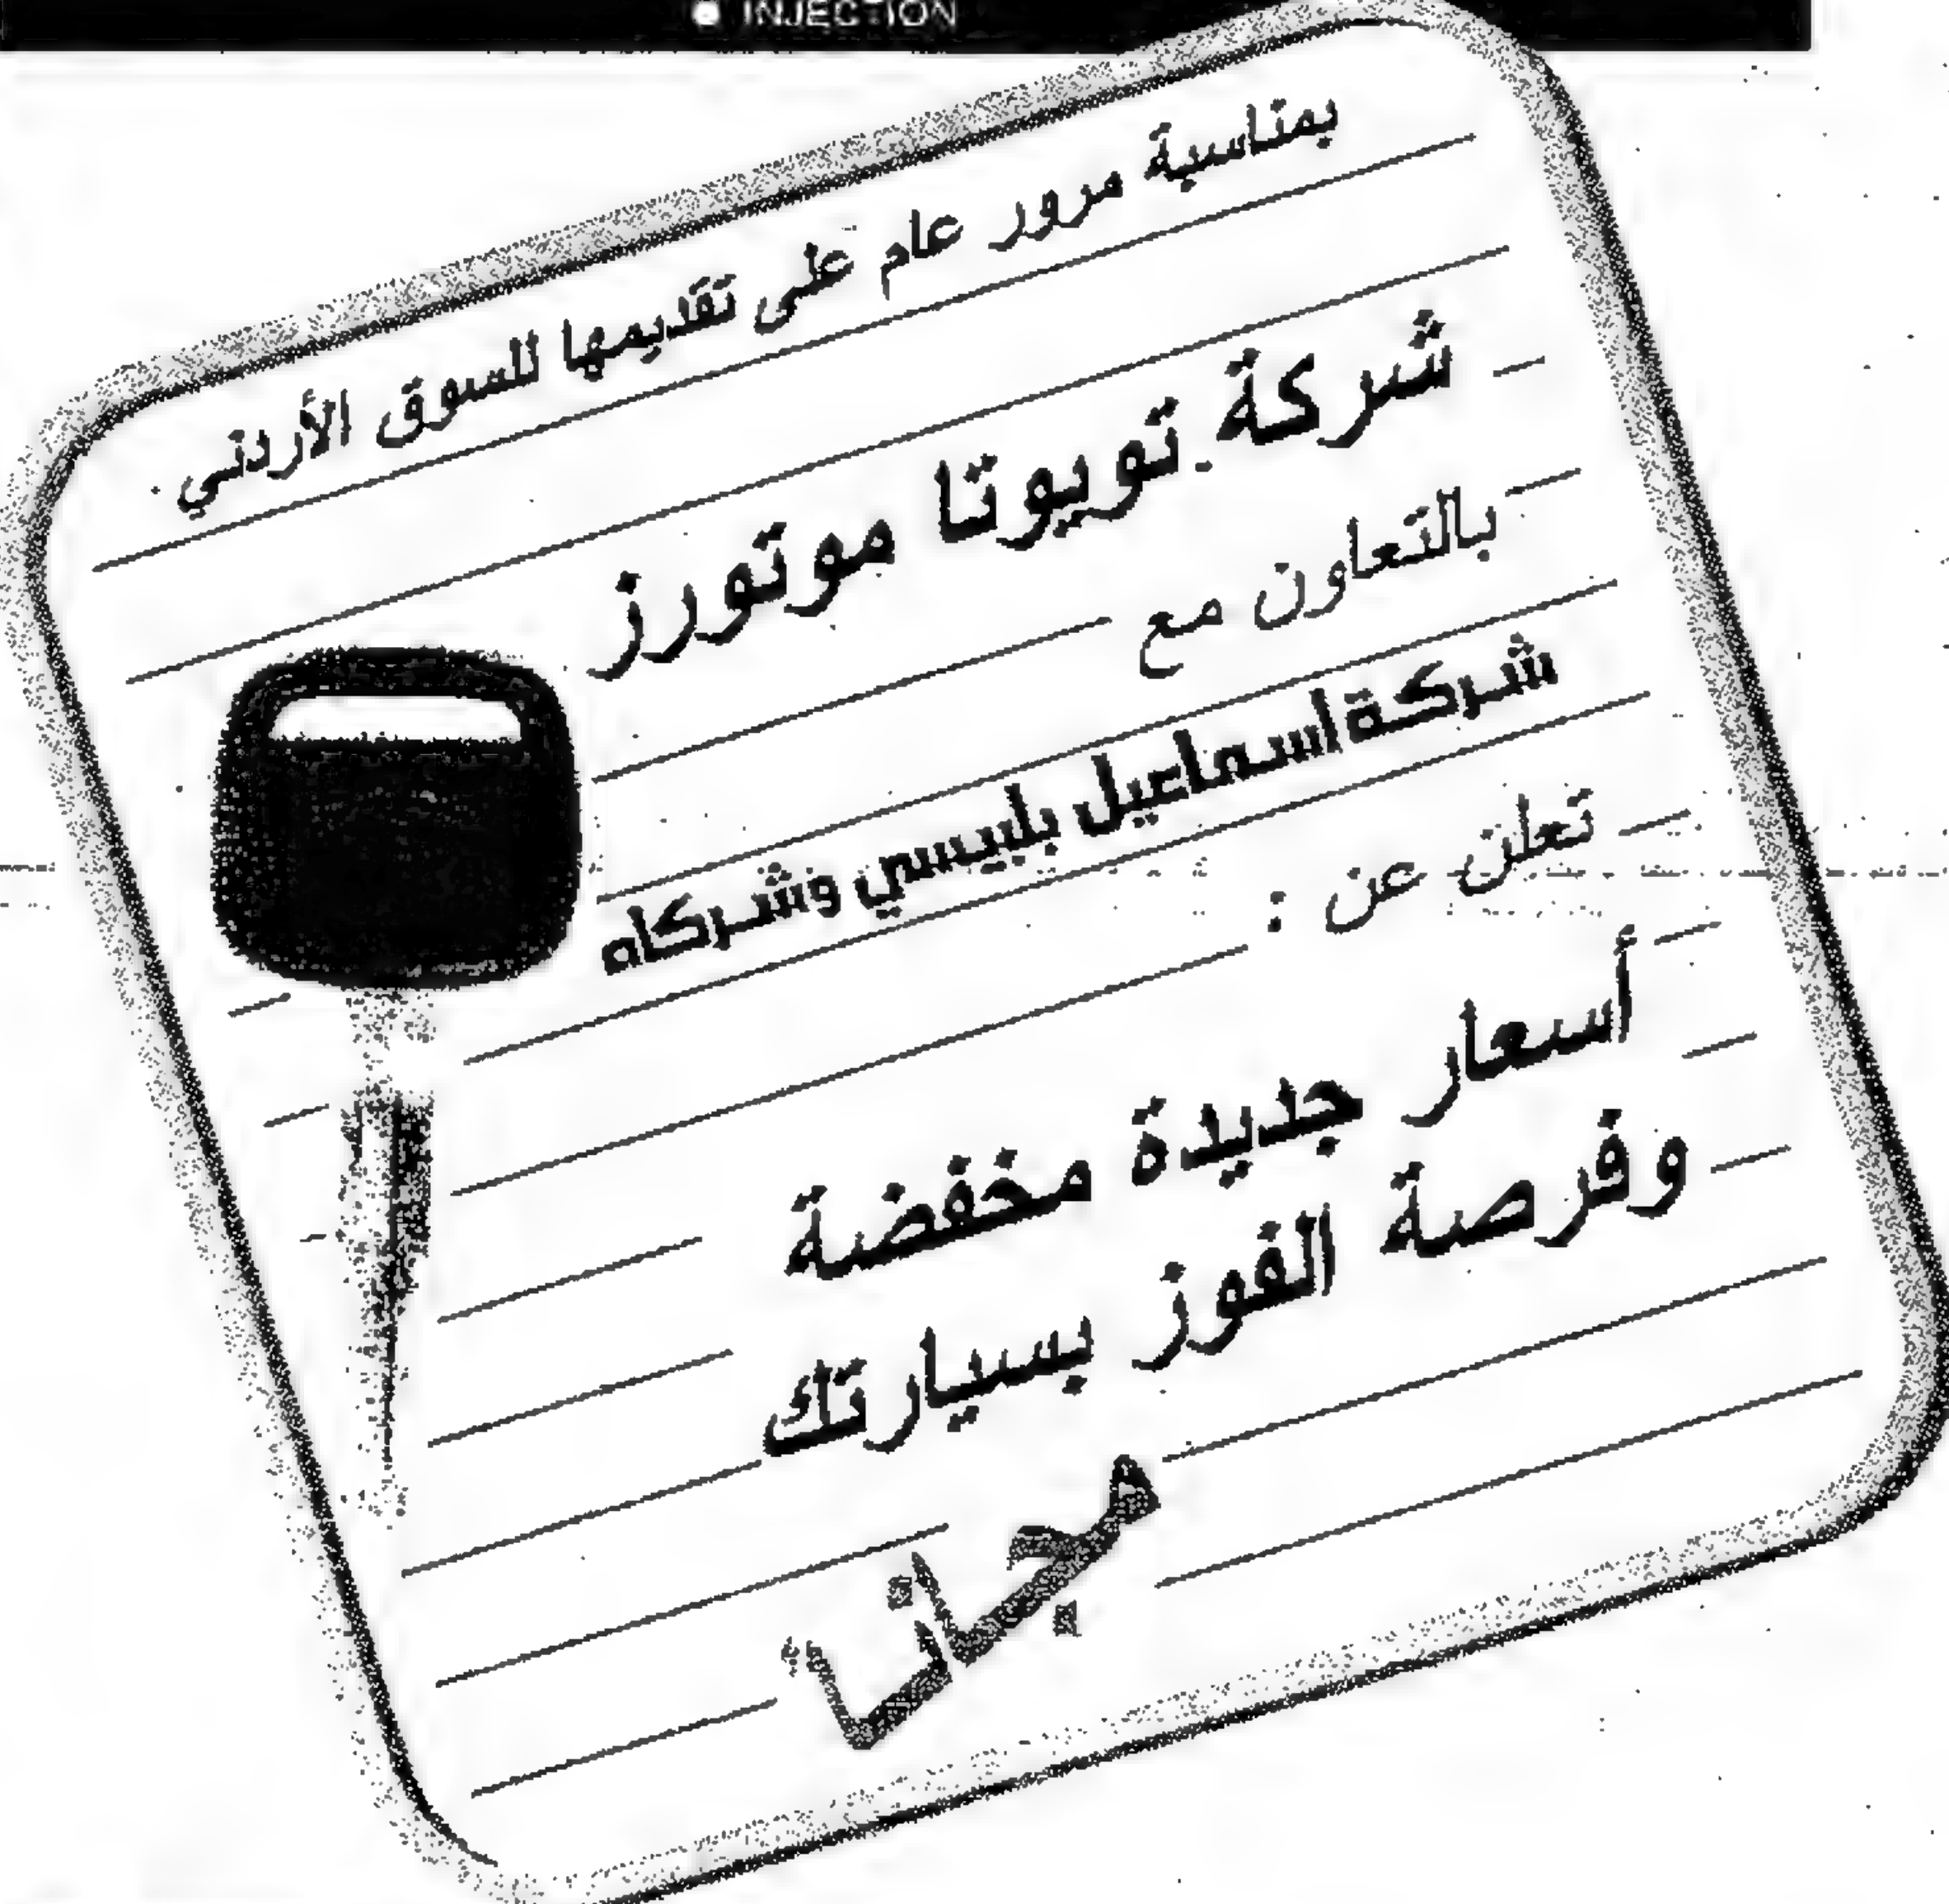 ● INJECTION
بمناسبة مرور عام على تقديمها للسوق الأردني .
شركة تويوتا موتورز
بالتعاون مع
شركة اسماعيل بلبيسي وشركاه
تعلن عن :
أسعار جديدة مخفضة
وفرصة الفوز بسيارتك
مجاناً